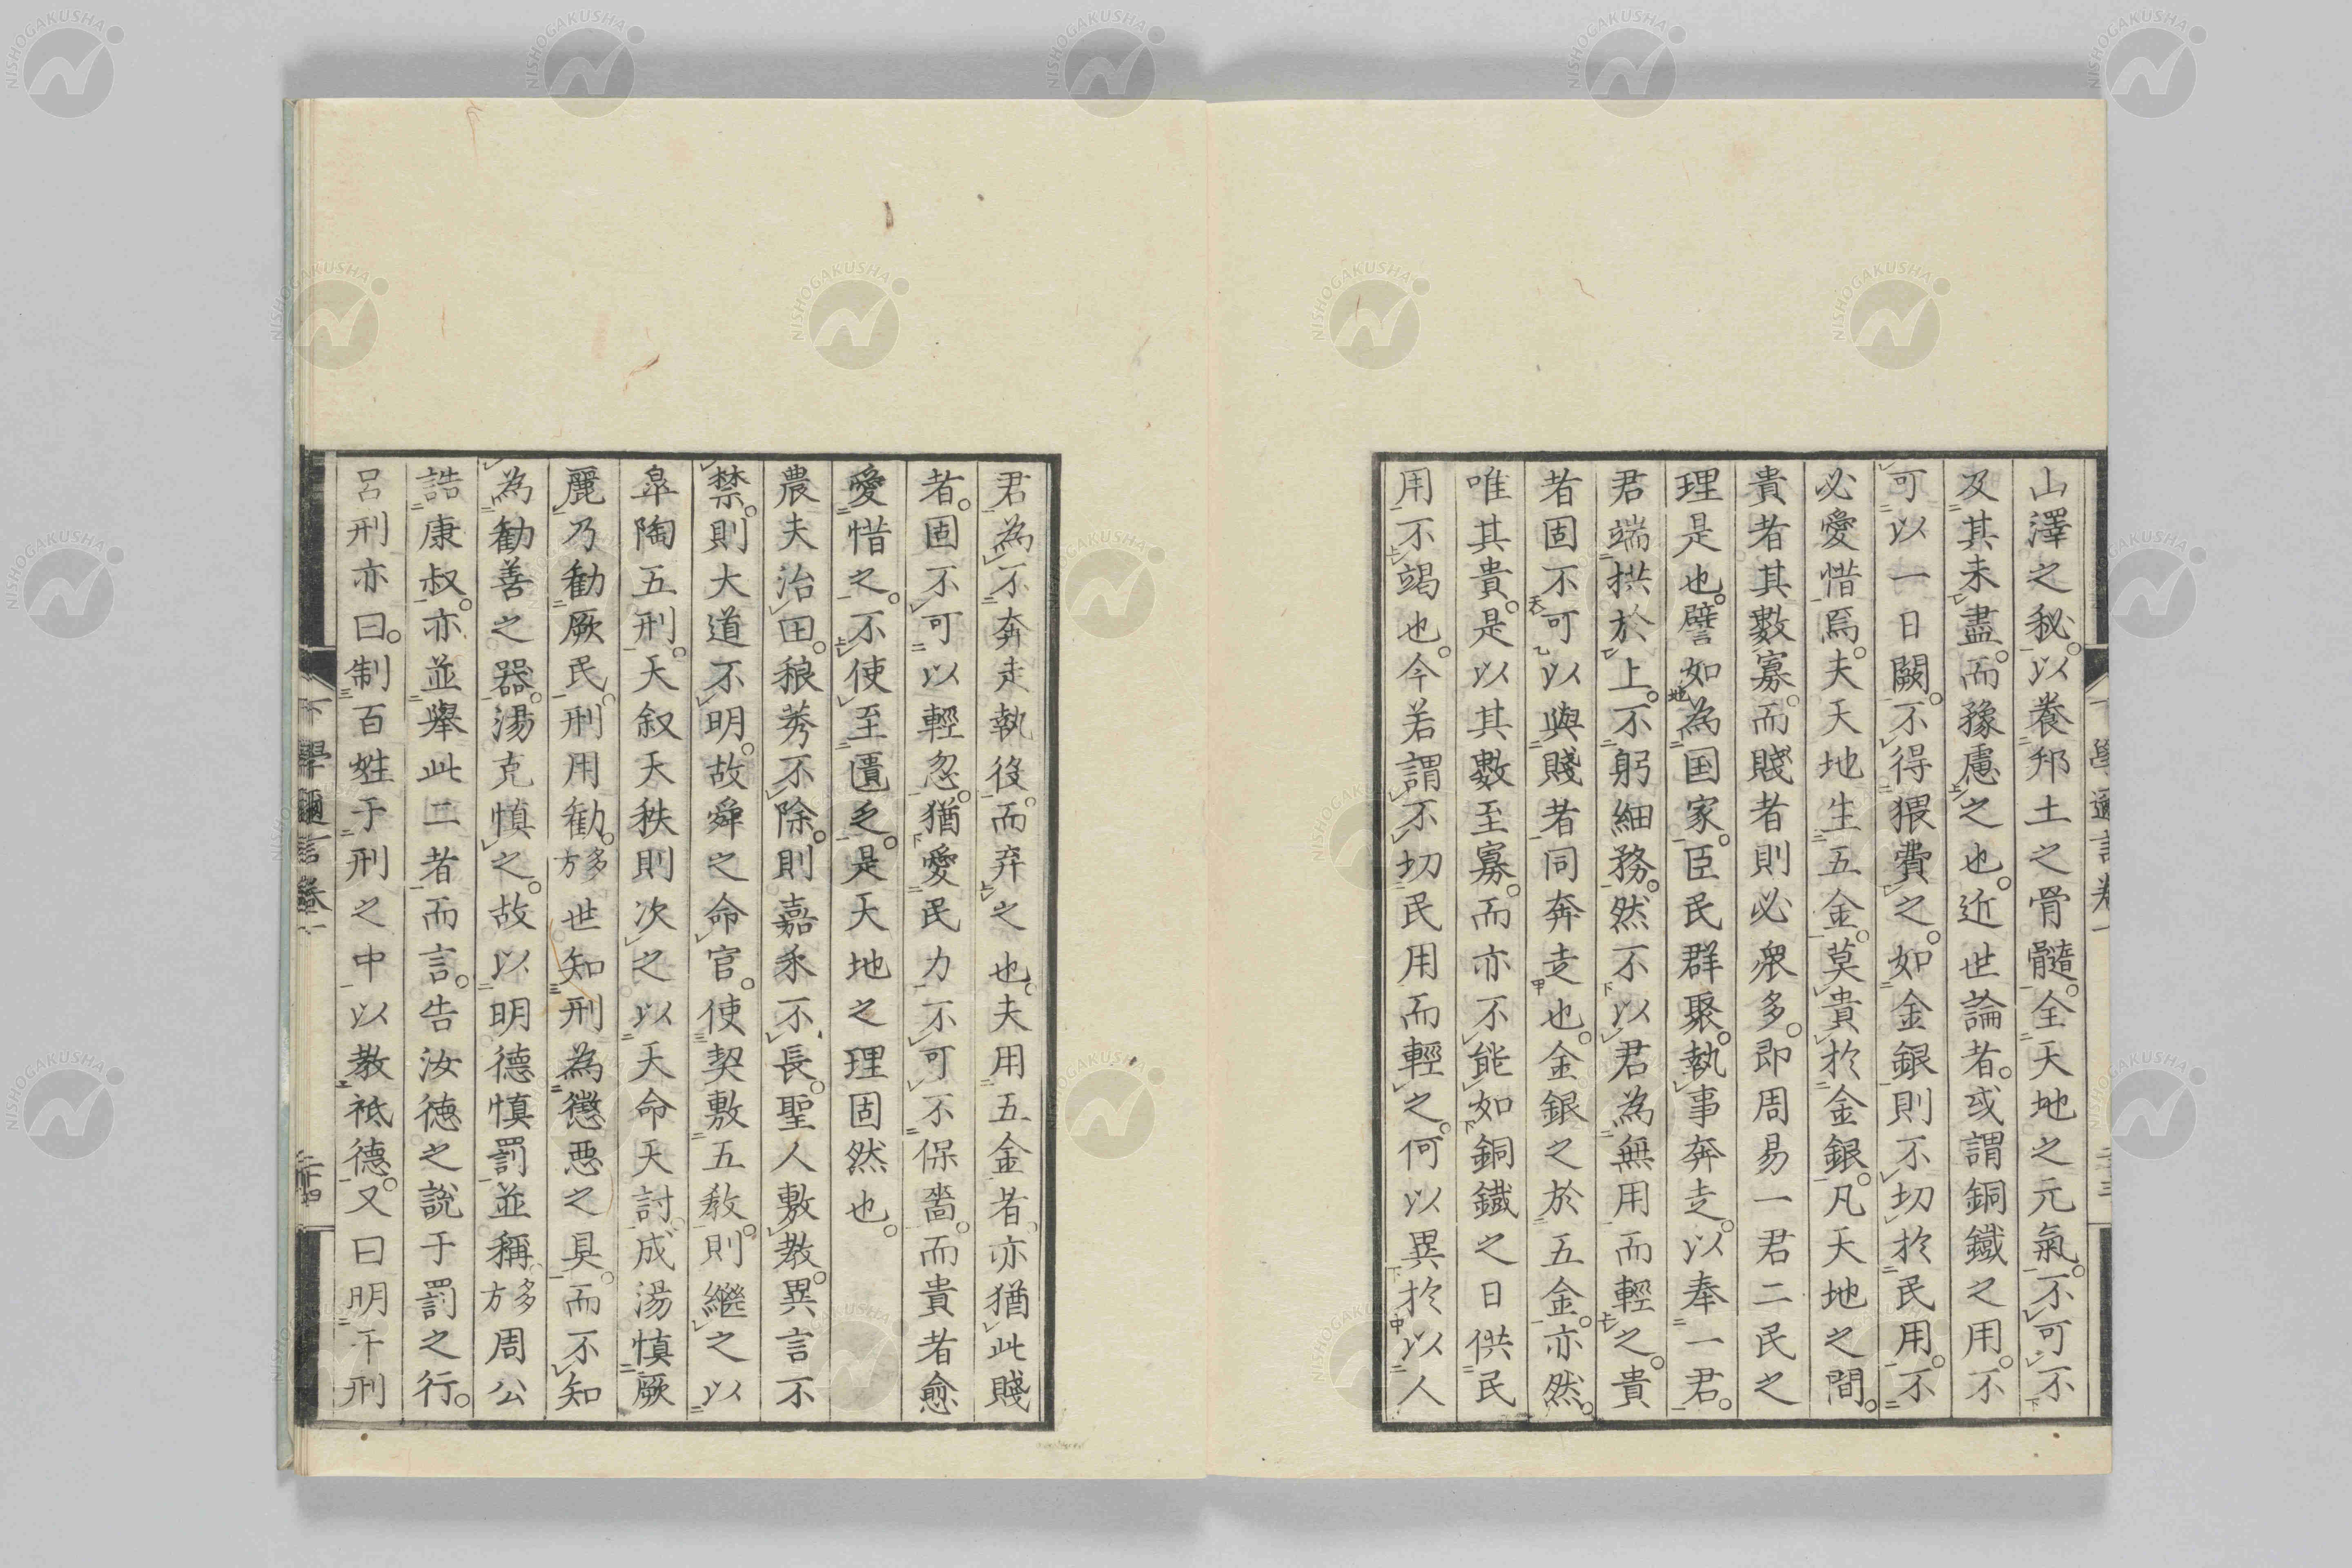 山澤之秘。以養邦土之骨髓。全天地之元氣。不可不
及其未盡。而豫慮之也。近世論者。或謂銅鐵之用。不
可以一日闕。不得猥費之。如金銀則不切於民用。不
必愛惜焉。夫天地生五金。莫貴於金銀。凡天地之間。
貴者其數寡。而賤者則必衆多。即周易一君二民之
理是也。譬如為国家。臣民群聚。執事奔走。以奉一君。
君端拱於上。不躬細務。然不以君為無用而輕之。貴
者固不可以與賤者同奔走也。金銀之於五金。亦然。
唯其貴。是以其數至寡。而亦不能如銅鐵之日供民
用不竭也。今若謂不切民用而輕之。何以異於以人
君為不奔走執役。而弃之也。夫用五金者。亦猶此賤
者。固不可以輕忽。猶愛民力。不可不保嗇。而貴者愈
愛惜之。不使至匱乏。是天地之理固然也。
農夫治田。稂莠不除。則嘉禾不長。聖人敷教。異言不
禁。則大道不明。故舜之命官。使契敷五教。則繼之以
皐陶五刑。天叙天秩則次之以天命天討。成湯慎厥
麗乃勸厥民。刑用勸。多方世知刑為懲悪之具。而不知
為勸善之器。湯克慎之。故以明德慎罰並稱多方周公
誥康叔。亦並舉此二者而言。告汝德之說于罰之行。
呂刑亦曰。制百姓于刑之中以教祗德。又曰明于刑
下學邇言卷一
二十三
下學邇言卷一
二十四
NISHOGAKUSHA